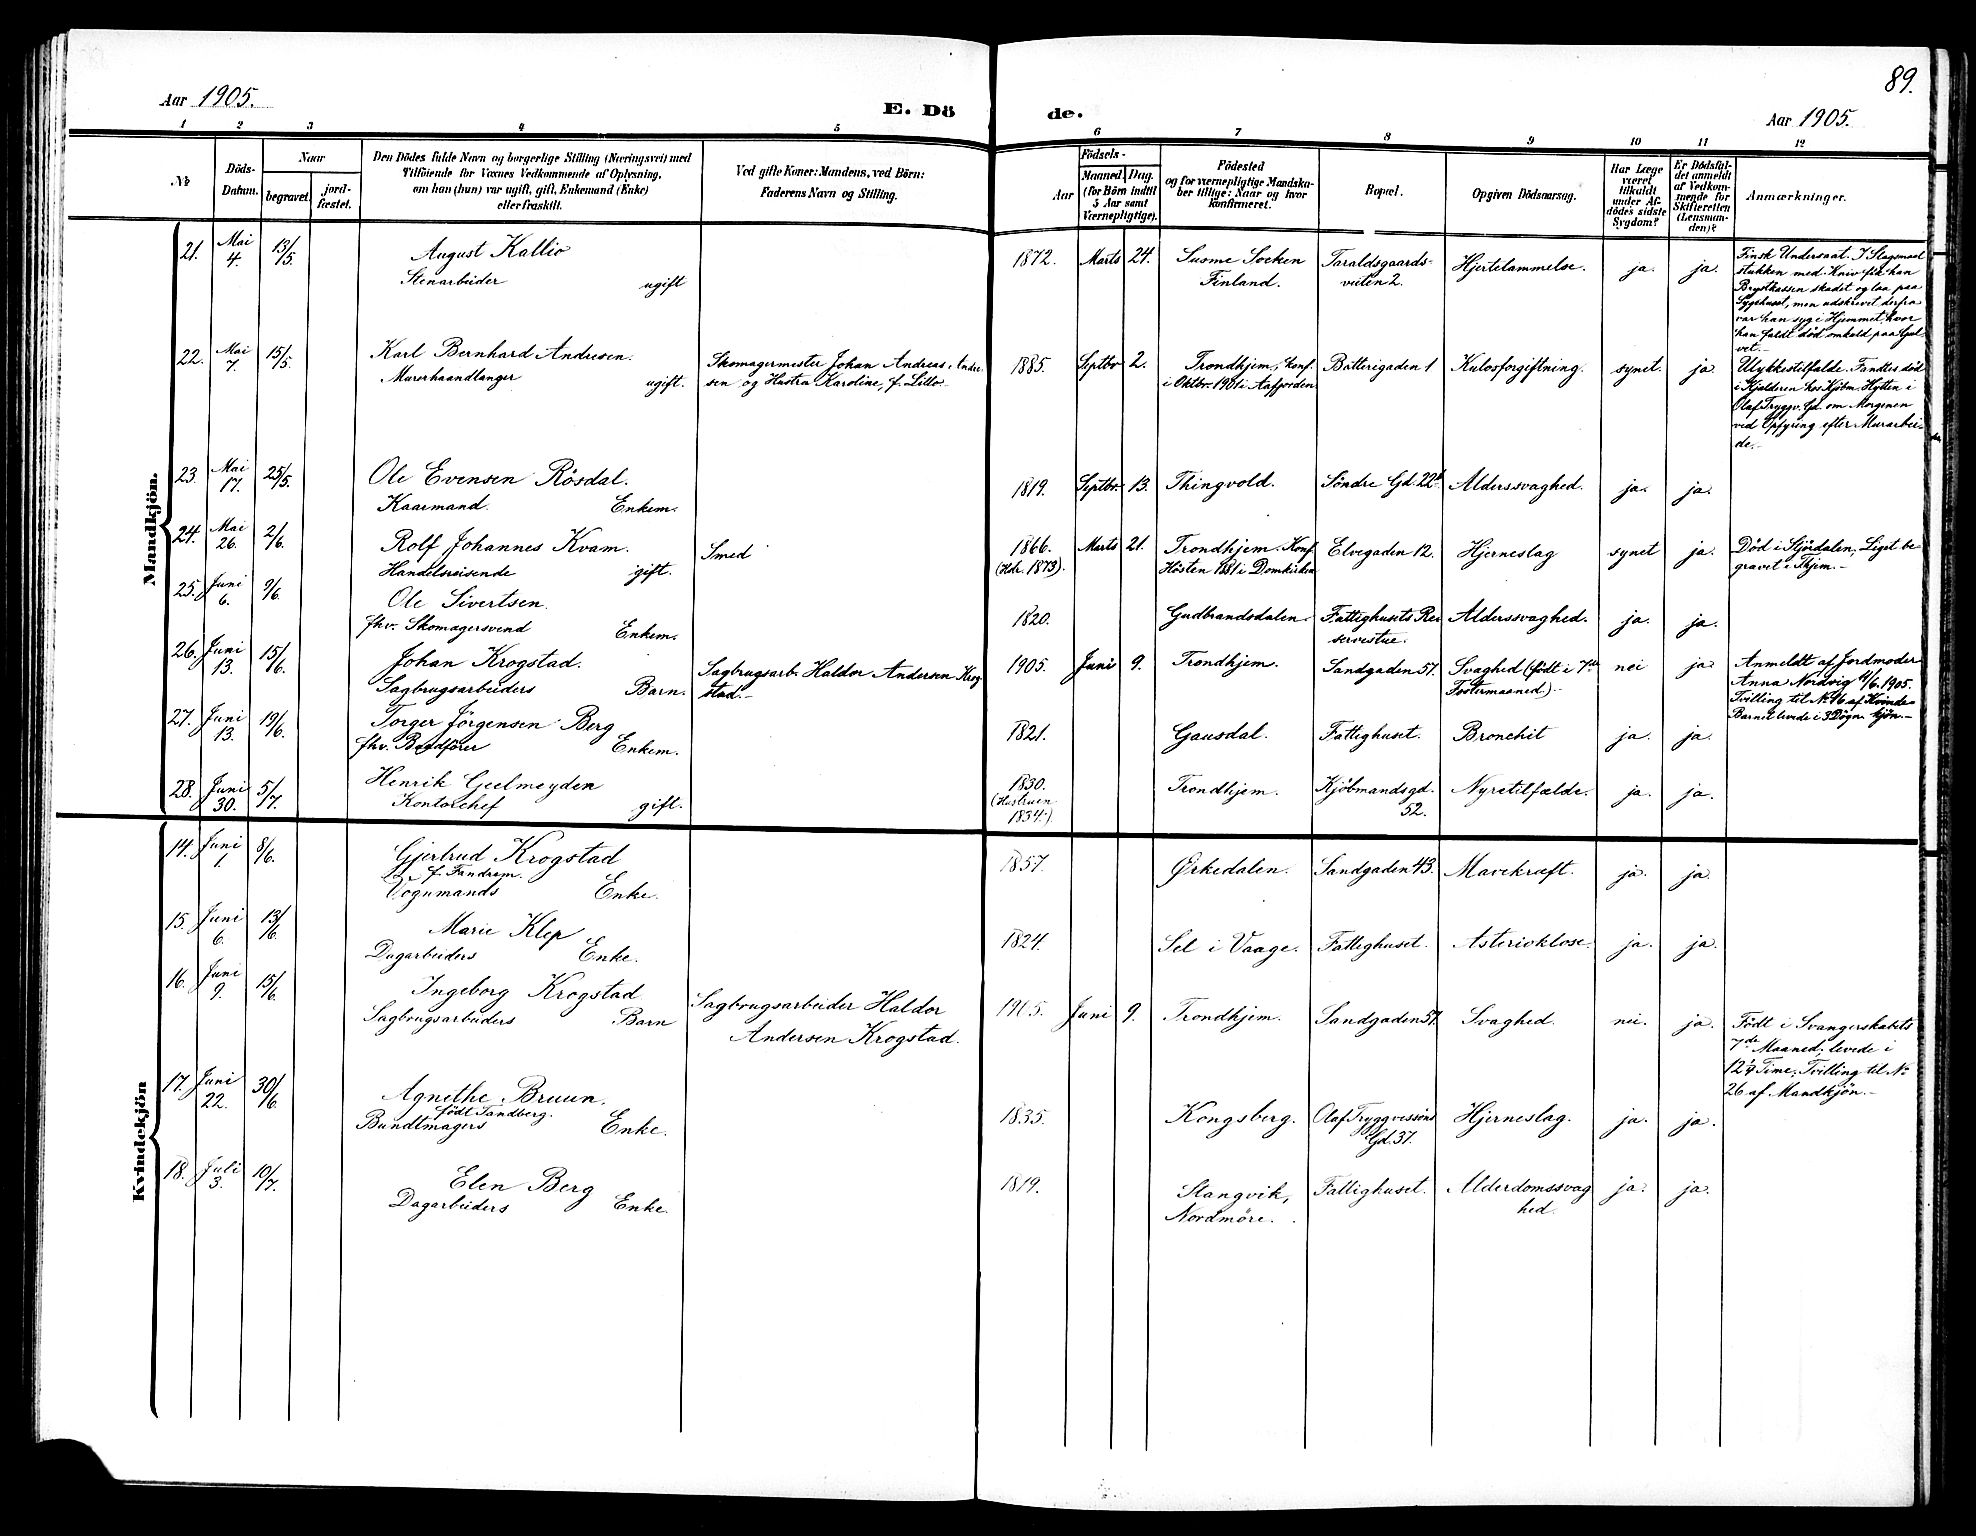 89.
Aar 1905.
E. Dö
de.
Aar 1905.
1 2 3 4 5 6 7 8 9 10 11 12
No
Döds-
Datum.
Naar
begravet
jord-
fæstet.
Den Dödes fulde Navn og borgerlige Stilling (Næringsvei) med
Tilföiende for Voxnes Vedkommende af Oplysning,
om han (hun) var ugift, gift, Enkemand (Enke)
eller fraskilt.
Ved gifte Koner: Mandens, ved Börn:
Faderens Navn og Stilling.
Födsels-
Aar
Maaned. Dag.
(for Börn indtil
5 Aar samt
Værnepligtige).
Födested
og for værnepligtige Mandska-
ber tillige: Naar og hvor
konfirmeret.
Bopæl.
Opgiven Dödsaarsag.
Har Læge
været
tilkaldt
under Af-
dödes sidste
Sygdom?
Er Dödsfal-
det anmeldt
af Vedkom-
mende for
Skifteretten
(Lensman-
den)?
Anmærkninger.
Mandkjön.
21. Mai 4. 13/5 August Kallio
Stenarbeider ugift
1872. Marts 24. Susme Socken
Finland.
Taraldsgaards-
veiten 2.
Hjertelammelse. ja. ja.
Finsk Undersaat. I Slagsmaal
stukken med Kniv fik han
Brystkassen skadet og laa paa
Sygehuset, men udskrevet derfra
var han syg i Hjemmet, hvor
han faldt död omkold paa Gul-
vet.
22. Mai 7. 15/5. Karl Bernhard Andresen.
Murerhaandlanger ugift.
Skomagermester Johan Andreas Andre-
sen og Hustru Karoline, f. Lillo.
1885. Septbr 2. Trondhjem, konf.
i Oktbr 1901 i Aafjorden
Batterigaden 1 Kulosforgiftning. synet. ja
Ulykkestilfælde. Fandtes död
i Kjælderen hos Kjöbm. Hytten i
Olaf Tryggv. Gd. om Morgenen
ved Opfyring efter Murarbei-
de.-
23. Mai 17. 25/5. Ole Evensen Rösdal.
Kaarmand. Enkem.
1819. Septbr. 13. Thingvold. Söndre Gd. 22 Alderssvaghed. ja. ja.
24. Mai 26. 2/6. Rolf Johannes Kvam.
Handelsreisende gift.
Smed
1866. Marts 21. Trondhjem. Konf.
(Hdr. 1873). Hösten 1881 i Domkirken
Elvegaden 12. Hjerneslag synet ja.
Död i Stjördalen, Liget be-
gravet i Thjem.-
25. Juni 6. 9/6. Ole Sivertsen.
fhv. Skomagersvend Enkem.
1820. Gudbrandsdalen. Fattighusets Re-
servestue.
Alderssvaghed. ja. ja.
26. Juni 13. 15/6. Johan Krogstad.
Sagbrugsarbeiders Barn.
Sagbrugsarb. Haldor Andersen Krog-
stad.-
1905. Juni 9. Trondhjem. Sandgaden 57. Svaghed (födt i 7de
Fostermaaned).- nei ja
Anmeldt af Jordmoder
Anna Nordvig 14/6.1905.
Tvilling til No 16 af Kvinde-
Barnet levede i 3 Dögn kjön.-
27. Juni 13. 19/6. Torger Jörgensen Berg
fhv. Baadförer Enkem.
1821. Gausdal. Fattighuset. Bronchit ja. ja.
28. Juni 30. 5/7. Henrik Geelmeyden
Kontorchef gift.
1830.
(Hustruen
1834.)
Trondhjem. Kjöbmandsgd.
52.
Nyretilfælde. ja. ja.
Kvindekjön
14. Juni 1. 8/6. Gjertrud Krogstad
f. Fandrem.
Vognmands Enke.
1857. Örkedalen. Sandgaden 43. Mavekræft. ja. ja.
15. Juni 6. 13/6. Marie Klep
Dagarbeiders Enke.
1824. Sel i Vaage. Fattighuset. Asterioklose. ja. ja.
16. Juni 9. 15/6. Ingeborg Krogstad
Sagbrugsarbeiders Barn
Sagbrugsarbeider Haldor
Andersen Krogstad.
1905. Juni 9. Trondhjem. Sandgaden 57. Svaghed. nei. ja.
Födt i Svangerskabets
7de Maaned, levede i
12¼ Time. Tvilling til No
26 af Mandkjön.-
17. Juni 22. 30/6. Agnethe Bruun.
födt Sandberg.
Bundtmagers Enke.
1835. Kongsberg. Olaf Tryggvessöns
Gd. 37.
Hjerneslag. ja. ja.
18. Juli 3. 10/7. Elen Berg
Dagarbeiders Enke.
1819. Stangvik,
Nordmöre.
Fattighuset. Alderdomssvag
hed. ja. ja.